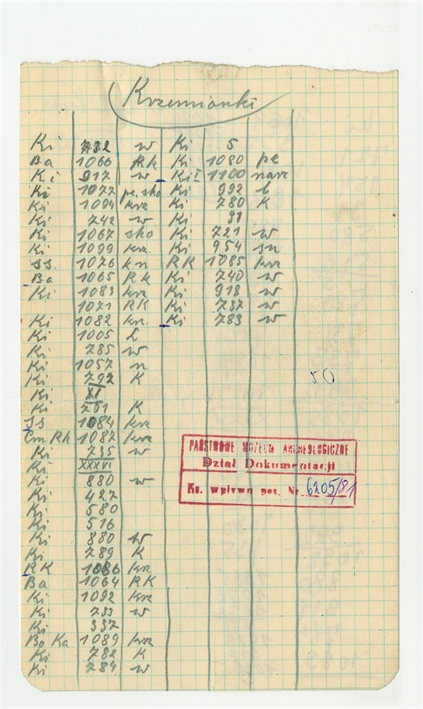 Krzemionki
Ki 782 w Ki 5
Ba 1066 RK Ki 1080 pe
Ki 917 w Ki I 1100 narz
Ki 1077 pe. sko Ki 992 b
Ki 1094 krz Ki 780 K
Ki 742 w Ki 91
Ki 1067 sko Ki 721 w
Ki 1099 krz. Ki 954 sn
SS. 1076 kn RK 1085 krz
Ba 1065 RK Ki 740 w
Ki 1083 krz Ki 918 w
1071 RK Ki 737 w
Ki 1082 krz. Ki 783 w
Ki 1005 L
Ki 785 w
Ki 1057 n
Ki 792 K
Ki XI
Ki 701 K
SS 1084 krz
Em RK 1087 krz
Ki 735 w
Ki XXXVI
Ki 880 w
Ki 427
Ki 580
Ki 516
Ki 880 w
Ki 789 K
RK 1086 krz
Ba 1064 RK
Ki 1092 krz
Ki 733 w
Ki 337
Bo Ka 1089 krz
Ki 782 K
Ki 784 w
50
PAŃSTWOWE MUZEUM ARCHEOLOGICZNE
Dział Dokumentacji
Ks. wpływu poz. Nr 6205/81